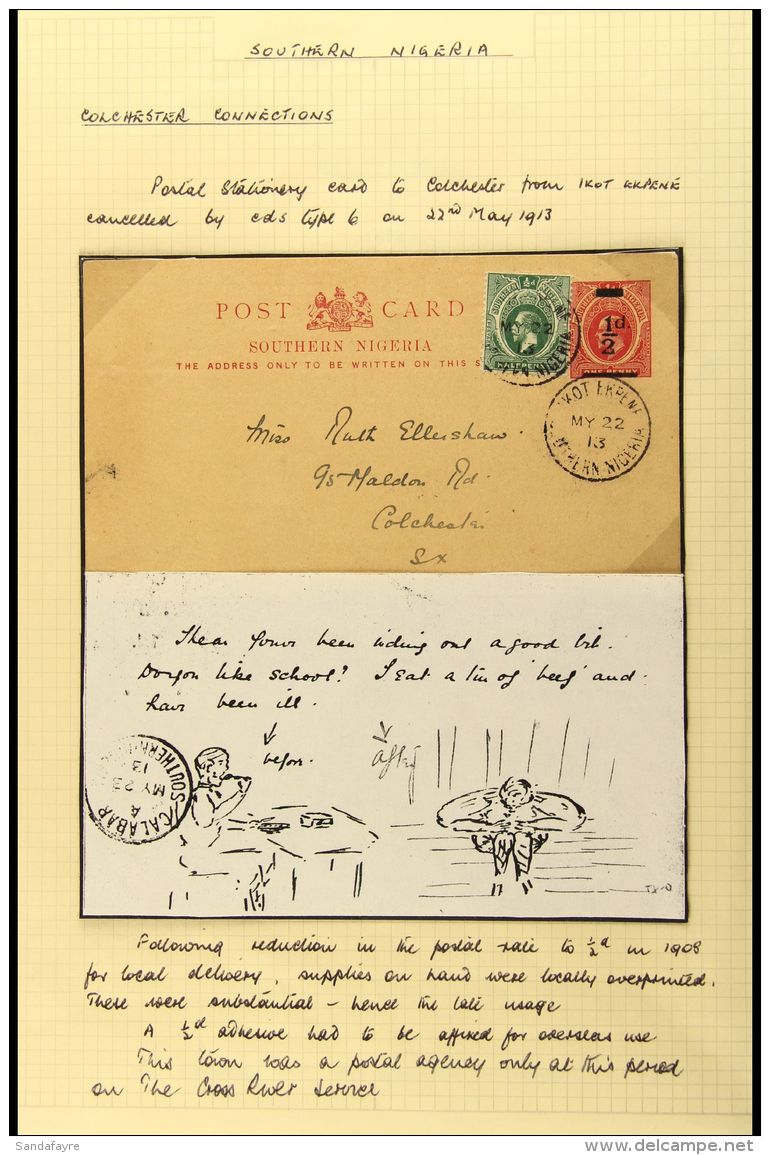 SOUTHERN NIGERIA
COLCHESTER CONNECTIONS
Postal Stationery card to Colchester from IKOT EKPENE
cancelled by cds type 6 on 22nd May 1913
POST CARD
SOUTHERN NIGERIA
THE ADDRESS ONLY TO BE WRITTEN ON THIS S
½d
HALFPENNY
½d
ONE PENNY
MY 22
13
IKOT EKPENE
MY 22
13
SOUTHERN NIGERIA
Miss Ruth Ellershaw.
95 Maldon Rd
Colchester
Sx
I hear you've been riding out a good bit.
Do you like school? I eat a tin of 'beef' and
have been ill.
before.
after
CALABAR
SOUTHERN
A
MY 23
13
Following reduction in the postal rate to ½d in 1908
for local delivery, supplies on hand were locally overprinted.
These were substantial - hence the late usage
A ½d adhesive had to be affixed for overseas use
This town was a postal agency only at this period
on The Cross River Service
Sandafayre
www.delcampe.net